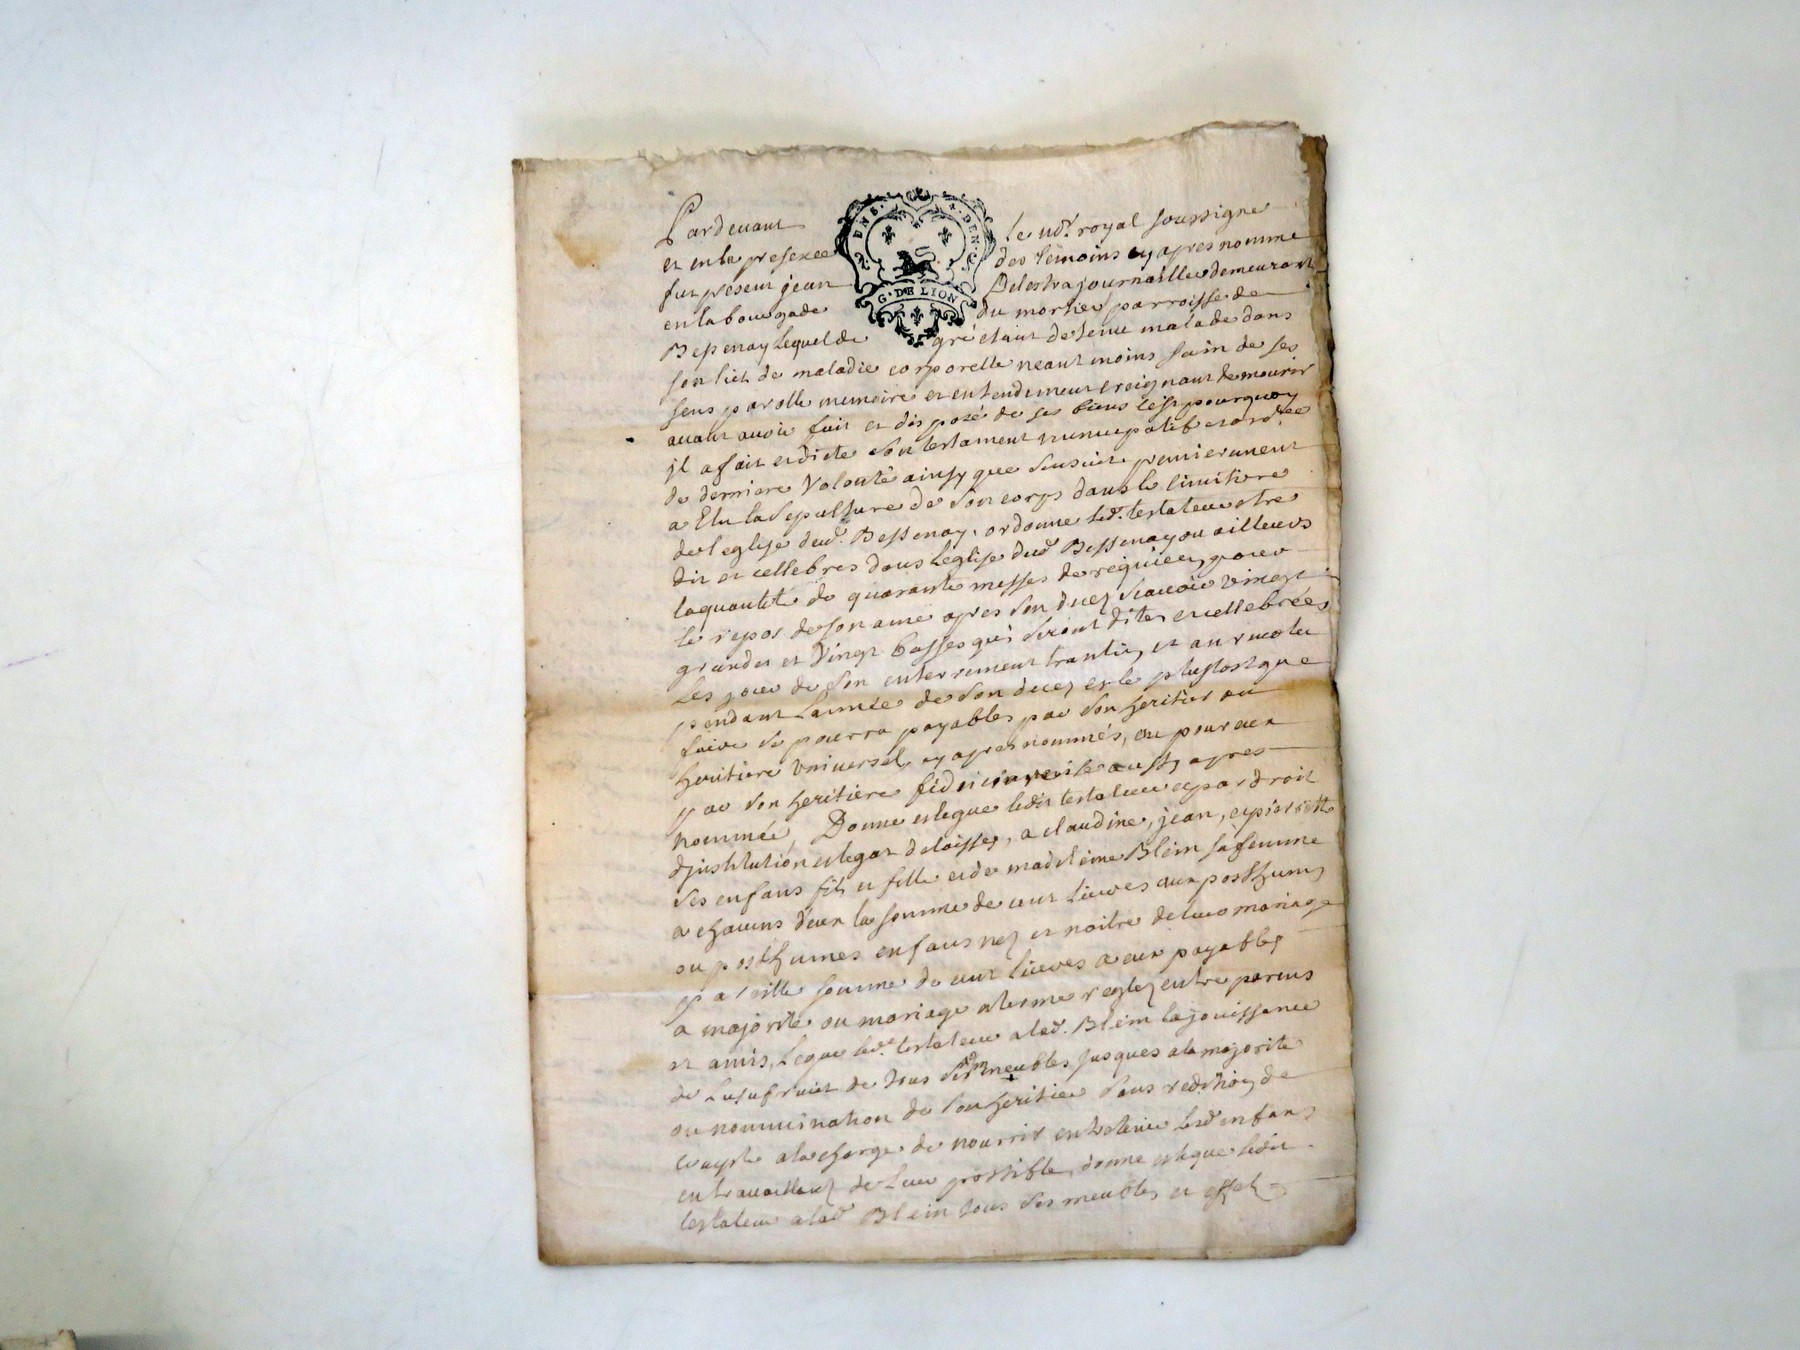 Pardevant le nore. royal soussigne
et en la presence des temoins cy apres nomme
fut present jean Delestra journaillier demeurant
en la bourgade du mortier parroisse de
Bessenay lequel de gré etant detenu malade dans
son lict de maladie corporelle neant moins sain de ses
sens parolle memoire et entendement creignant de mourir
avant avoir fait et disposé de ses biens cest pourquoy
jl a fait et dicte son testament nuncupatif et ord.re
de derniere volonté ainsy que sensuit premierement
a Elu la sepulture de son corps dans le cimitiere
de leglise dud. Bessenay, ordonne led. testateur etre
dit et cellebres dans leglise dud Bessenay ou ailleurs
la quantité de quarante messes de requiem, pour
le repos de son ame apres son decez scavoir vingt
grandes et vingt basses qui seront dites et cellebrées
les jour de son enterrement trantin, et au
pendant lannée de son decez et le plustost que
faire se pourra payables par son heritier ou
heritiere universel, cy apres nommés, ou pour eux
par son heritiere aussy apres
nommée, Donne et legue ledit testateur et par droit
djnstitution et legat delaisse, a claudine, jean, et pierrette
ses enfans fils et fille et de madeleine Blein sa femme
a chacuns deux la somme de cent livres aux posthums
ou posthumes enfans nez et naitre de leur mariage
pareille somme de cent livres a eux payables
a majorité ou mariage a terme reglez entre parens
et amis, Legue led. testateur a lad. Blein la jouissance
de lusufruit de tous ses jmmeubles jusques a la majorité
ou nommination de son heritier sans redition de
compte a la charge de nourrir entretenir lesd enfans
en travaillant de leur possible, donne et legue ledit
testateur a lad Blein tous ses meubles et effets
2.DNS. 4.DEN.
G.DE LION